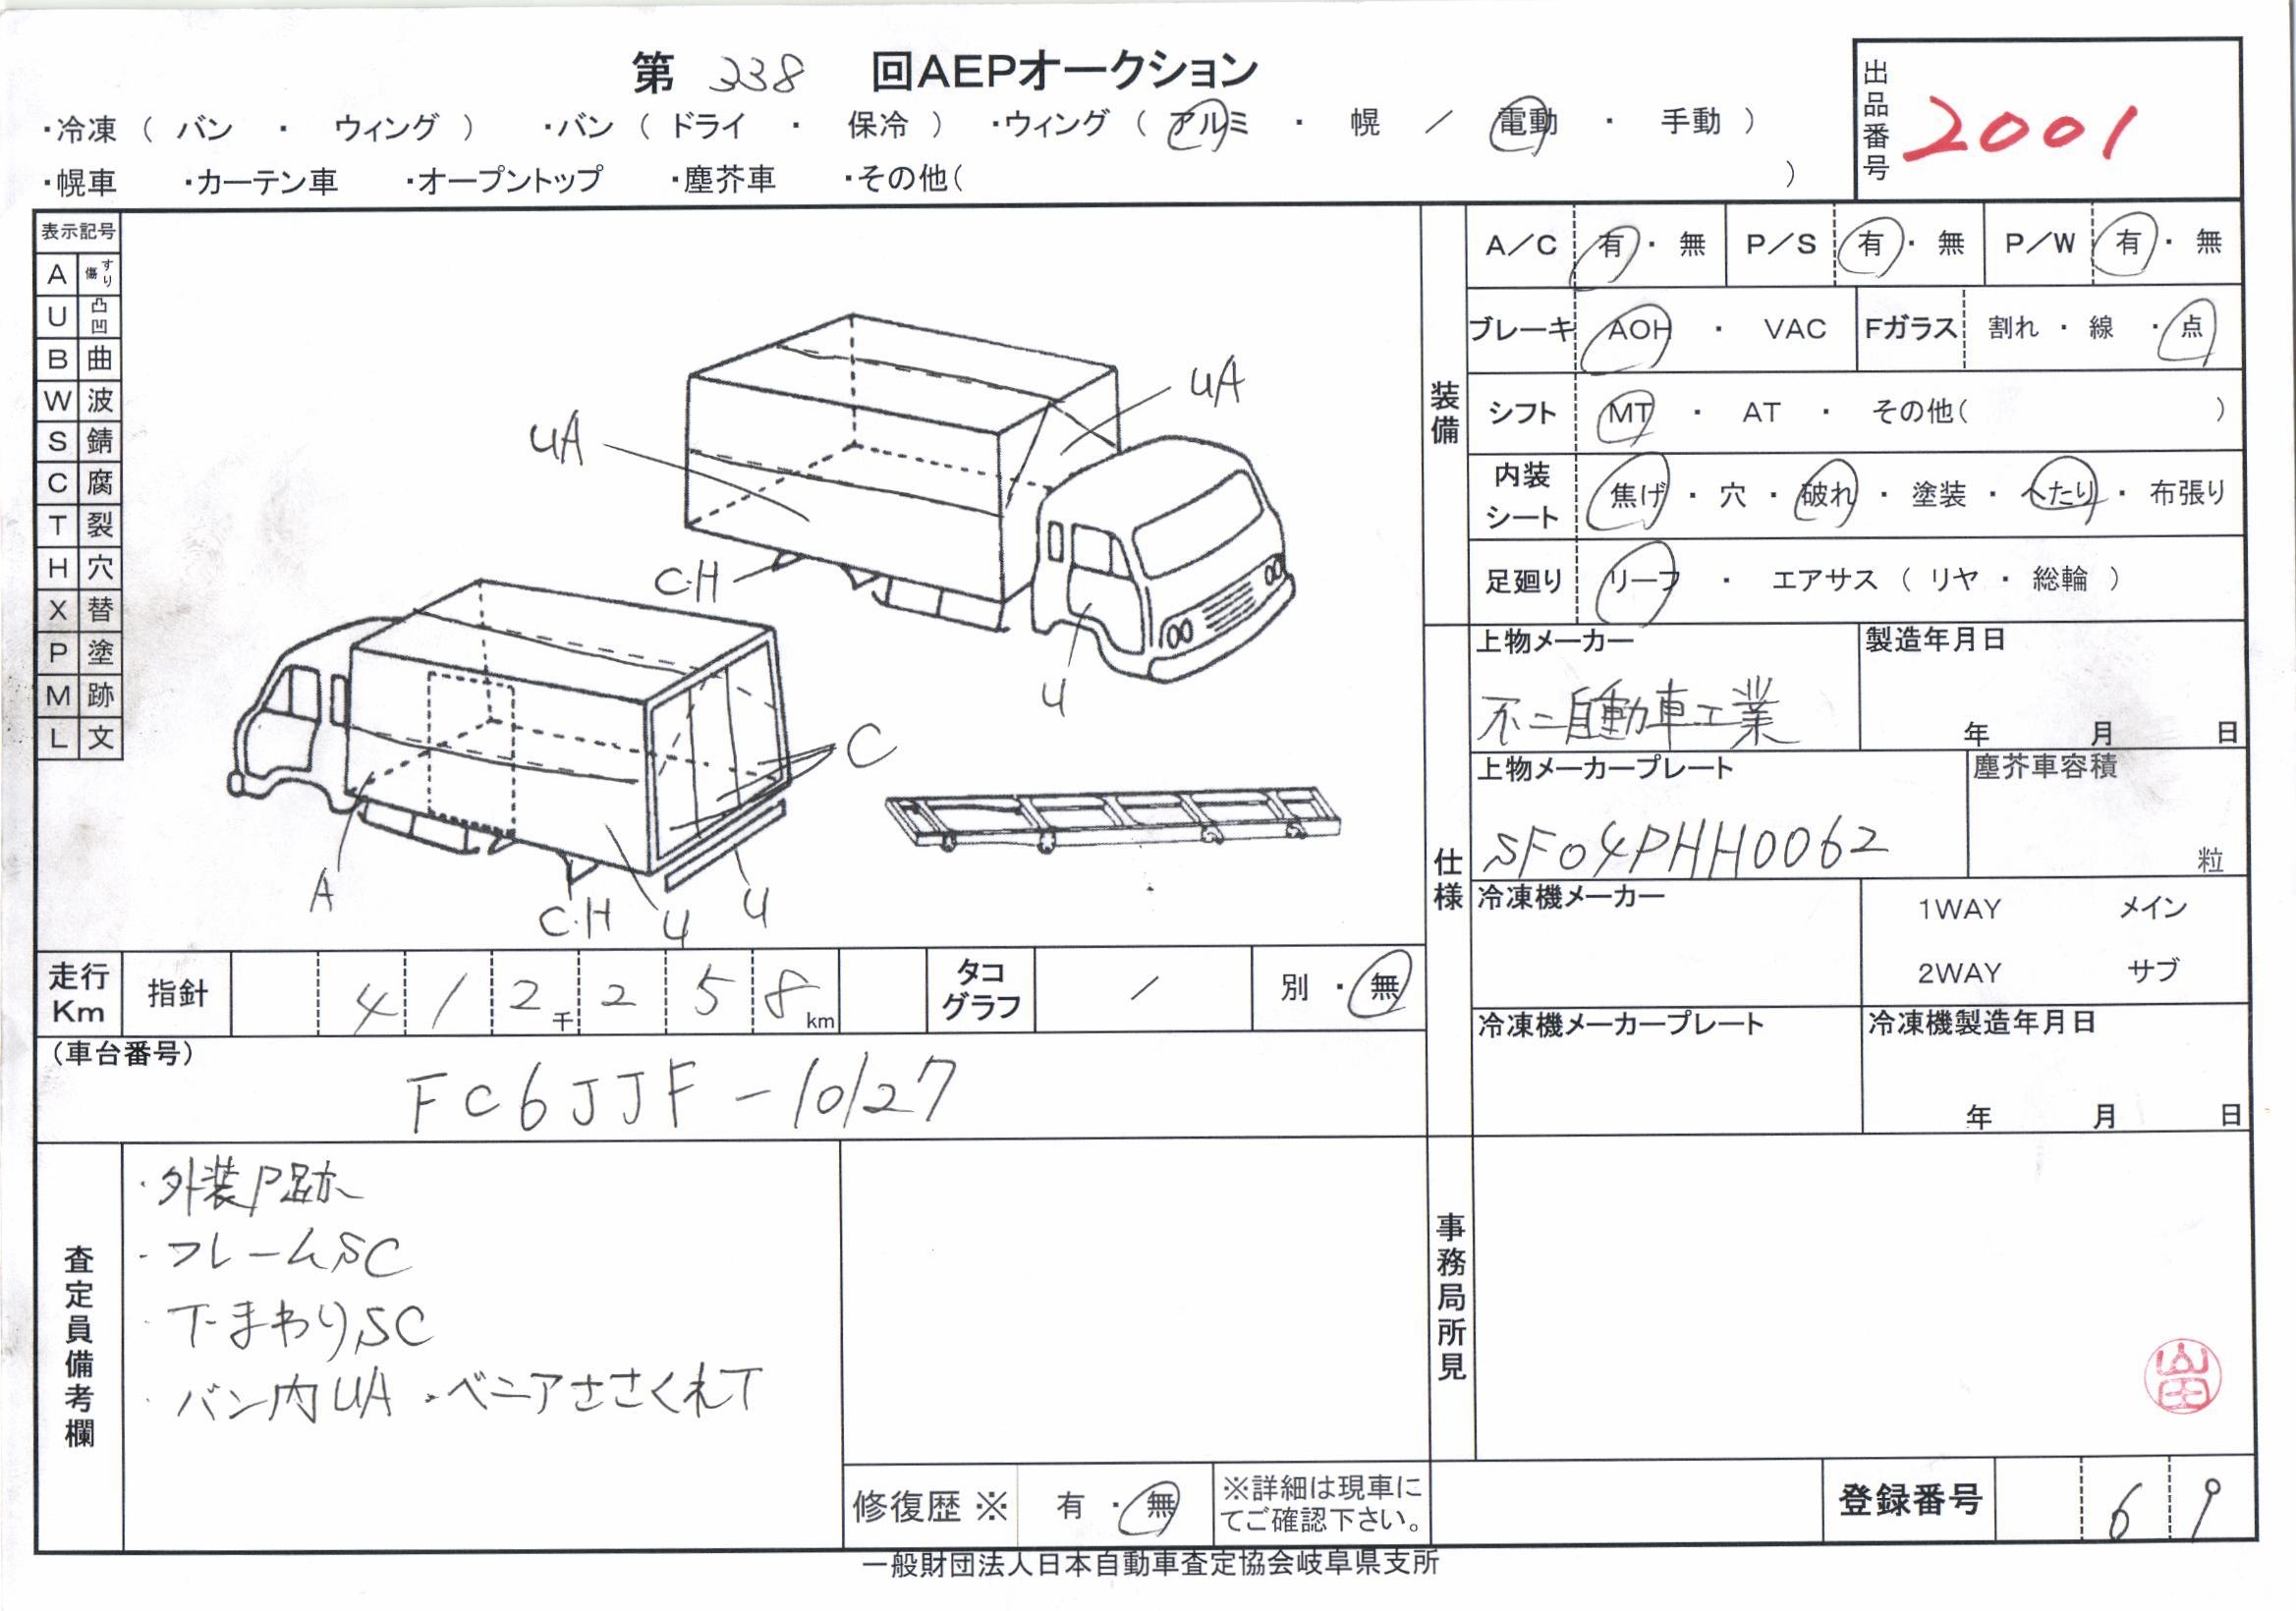 第 338 回AEPオークション
・冷凍 ( バン ・ ウィング ) ・バン ( ドライ ・ 保冷 ) ・ウィング ( アルミ ・ 幌 / 電動 ・ 手動 )
・幌車 ・カーテン車 ・オープントップ ・塵芥車 ・その他( )
出品番号 2001
表示記号
A すり傷
U 凸凹
B 曲
W 波
S 錆
C 腐
T 裂
H 穴
X 替
P 塗
M 跡
L 文
UA
UA
C・H
U
C
A
C・H
U
U
装備
A/C 有・無 P/S 有・無 P/W 有・無
ブレーキ AOH ・ VAC Fガラス 割れ・線・点
シフト MT ・ AT ・ その他( )
内装シート 焦げ・穴・破れ・塗装・へたり・布張り
足廻り リーフ ・ エアサス ( リヤ ・ 総輪 )
仕様
上物メーカー 製造年月日
不二自動車工業
年 月 日
上物メーカープレート 塵芥車容積
SF04PHH0062
粒
冷凍機メーカー 1WAY メイン
2WAY サブ
冷凍機メーカープレート 冷凍機製造年月日
年 月 日
走行Km 指針 4 1 2千 2 5 8km タコグラフ / 別・無
(車台番号)
FC6JJF-10127
査定員備考欄
・外装P跡
・フレームSC
・下まわりSC
・バン内UA ・ベニアささくれT
修復歴※ 有・無 ※詳細は現車にてご確認下さい。
事務局所見
山田
登録番号 6 9
一般財団法人日本自動車査定協会岐阜県支所